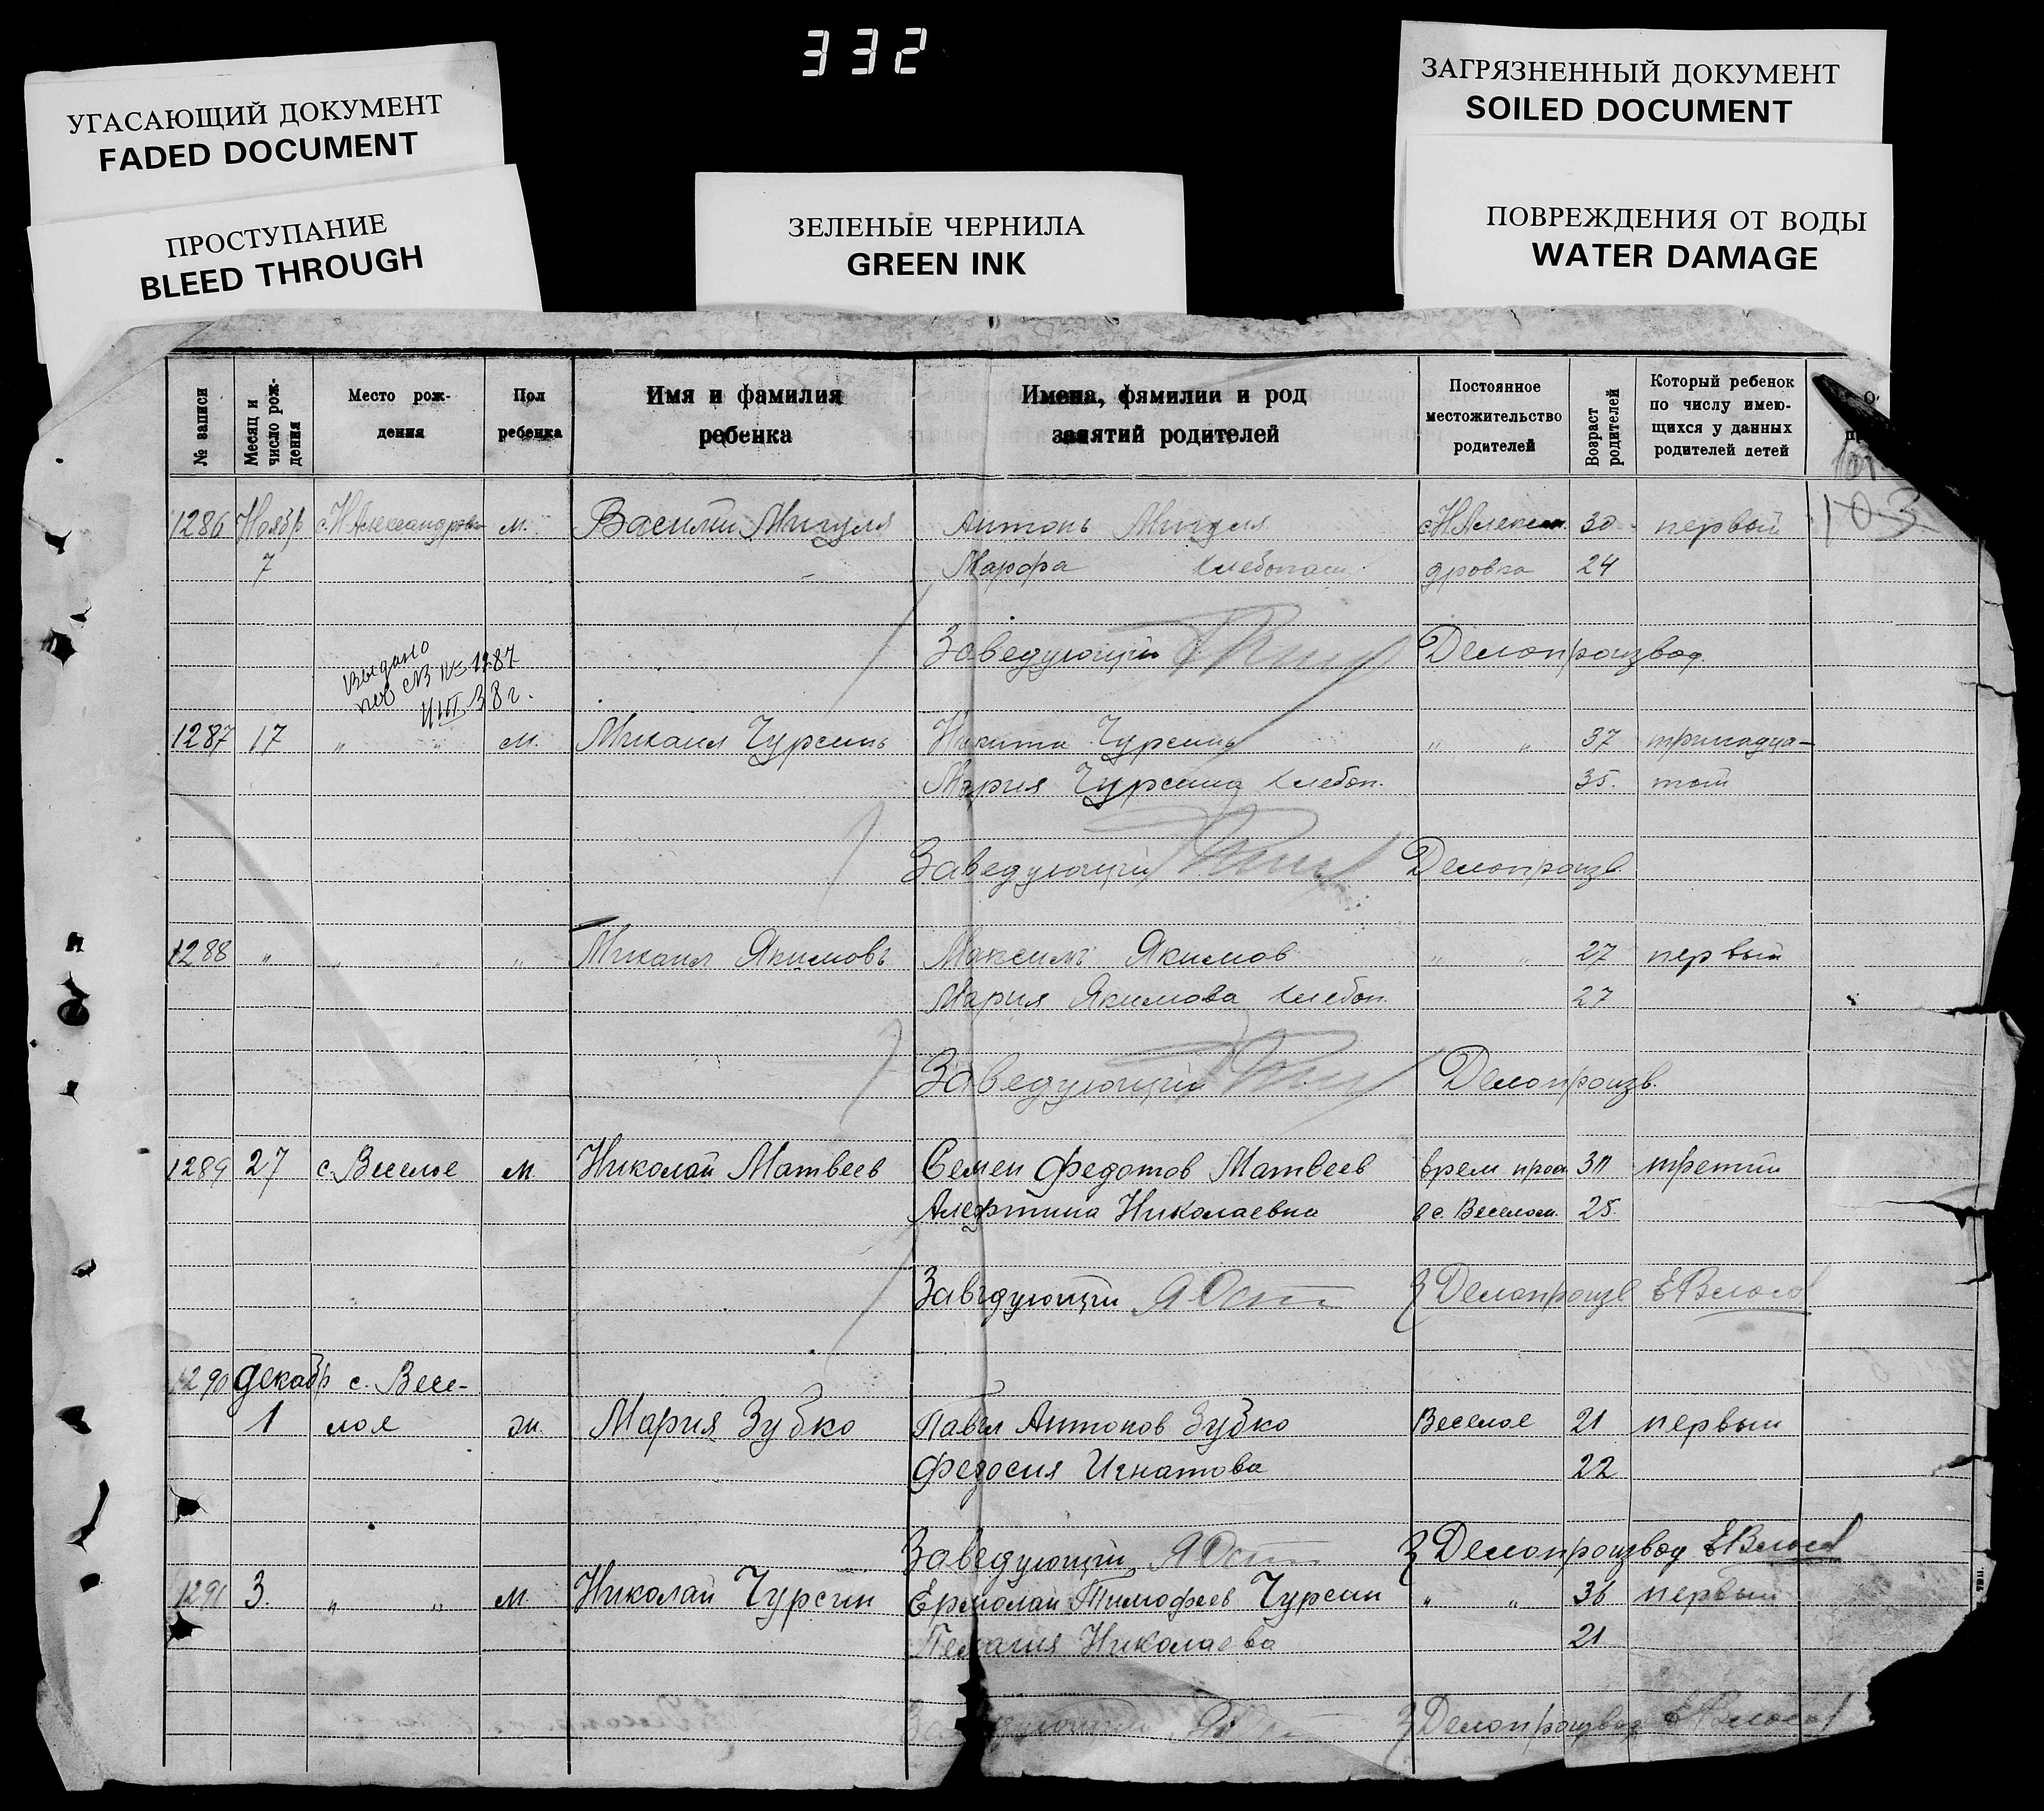 332
УГАСАЮЩИЙ ДОКУМЕНТ
FADED DOCUMENT
ПРОСТУПАНИЕ
BLEED THROUGH
ЗЕЛЕНЫЕ ЧЕРНИЛА
GREEN INK
ЗАГРЯЗНЕННЫЙ ДОКУМЕНТ
SOILED DOCUMENT
ПОВРЕЖДЕНИЯ ОТ ВОДЫ
WATER DAMAGE
№ записи
Месяц и число рож-дения
Место рож-
дения
Пол
ребенка
Имя и фамилия
ребенка
Имена, фямилии и род
занятий родителей
Постоянное
местожительство
родителей
Возраст родителей
Который ребенок
по числу имею-
щихся у данных
родителей детей
103
1286 Ноябр с. Н Александровк м. Василий Мигуля Антонъ Мигуля с Н. Алексан. 30 первый
7 Марфа хлебопаш. дровка 24
Заведующий Делопроизвод.
Выдано
по СВ № 1287
38 г.
1287 17 " " м. Михаил Чурсинъ Никита Чурсинъ " " 37 тринадца-
Мария Чурсина хлебоп. 35. тый
Заведующий Делопроизв.
1288 " " " " Михаил Якимовъ Максимъ Якимов " " 27 первый
Мария Якимова хлебоп. 27
Заведующий Делопроизв.
1289 27 с. Веселое м. Николай Матвеев Семен Федотов Матвеев врем прож 31 третий
Алефтина Николаевна в с. Веселом. 25.
Заведующий Делопроизв
1290 декабр с. Весе-
1 лое ж. Мария Зубко Павел Антонов Зубко Веселое 21 первый
Федосия Игнатова 22
Заведующий Делопроизвод
1291 3. " " м. Николай Чурсин Ермолай Тимофеев Чурсин " " 36 первый
Пелагия Николаева 21
Делопроизвод